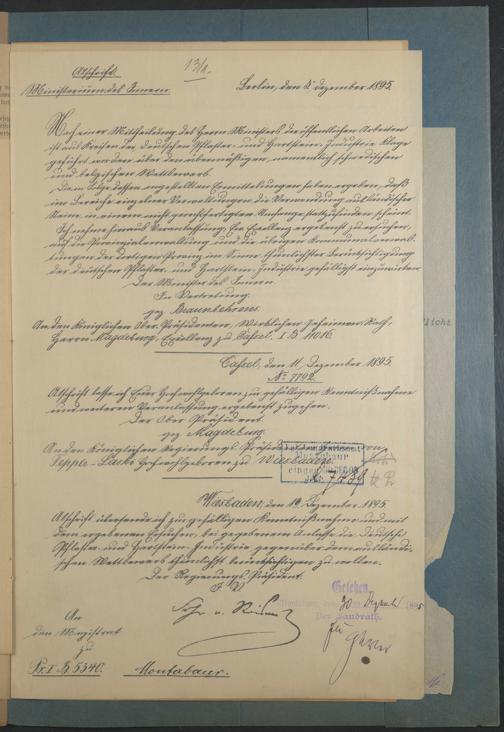 Abschrift.
13/1.
Ministerium des Innern.
Berlin, den 5. Dezember 1895.
Nach einer Mittheilung des Herrn Ministers der öffentlichen Arbeiten
ist aus Kreisen der deutschen Pflaster- und Hartstein-Industrie Klage
geführt worden über den übermäßigen, namentlich schwedischen
und belgischen Wettbewerb.
Die in Folge dessen angestellten Ermittelungen haben ergeben, daß
im Bereiche einzelner Verwaltungen die Verwendung ausländischer
Steine in einem nicht gerechtfertigten Umfange stattzufinden scheint.
Ich nehme hieraus Veranlassung, Eu. Excellenz ergebenst zu ersuchen,
auf die Provinzialverwaltung und die übrigen Kommunalverwal-
tungen der dortigen Provinz im Sinne thunlichster Berücksichtigung
der deutschen Pflaster- und Hartstein-Industrie gefälligst einzuwirken.
Der Minister des Innern.
In Vertretung.
gez. Braunbehrens.
An den Königlichen Ober-Präsidenten, Wirklichen Geheimen Rath,
Herrn Magdeburg, Excellenz zu Cassel. I B 11016.
Cassel, den 11. Dezember 1895.
No 7792.
Abschrift lasse ich Euer Hochwohlgeboren zur gefälligen Kenntnißnahme
und weiteren Veranlassung ergebenst zugehen.
Der Ober-Präsident
gez. Magdeburg.
An den Königlichen Regierungs-Präsidenten
Tepper-Laski Hochwohlgeboren zu Wiesbaden.
Montabaur
Wiesbaden, den Dezember 1895.
Abschrift übersende ich zur gefälligen Kenntnißnahme und mit
dem ergebenen Ersuchen, bei gegebenem Anlasse die deutsche
Pflaster- und Hartstein-Industrie gegenüber dem ausländi-
schen Wettbewerb thunlichst berücksichtigen zu wollen.
Der Regierungs-Präsident.
I. V.
An
den Magistrat
zu
Pr. I. B 5340.
Montabaur.
Gesehen.
Montabaur, den 30. Dezemb 1895
Der Landrath.